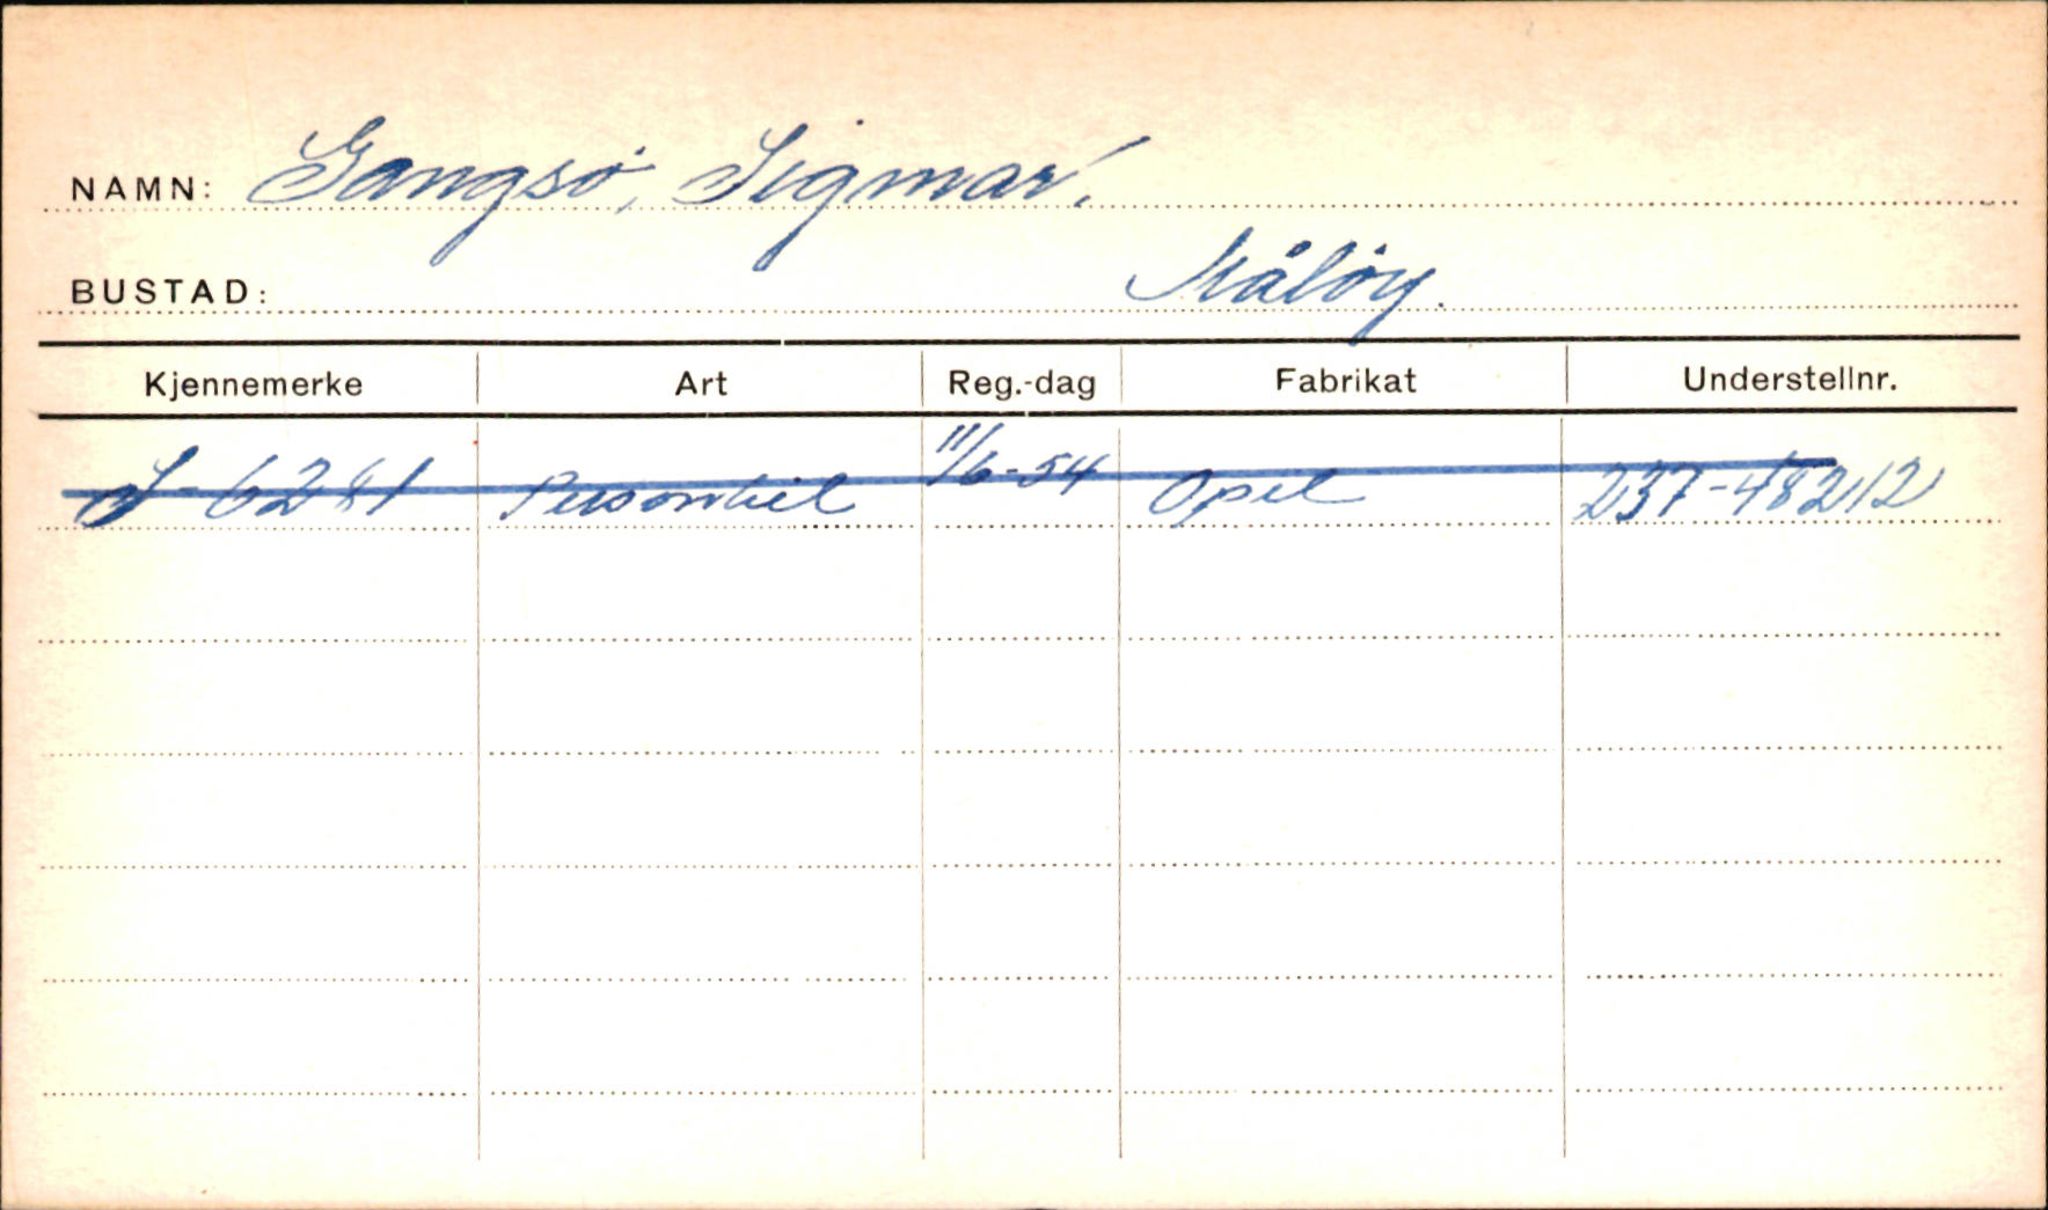 NAMN: Gangsö, Sigmar.
BUSTAD: Måløy.
Kjennemerke Art Reg.-dag Fabrikat Understellnr.
S-6281 Personbil 11/6-54 Opel 237-48212